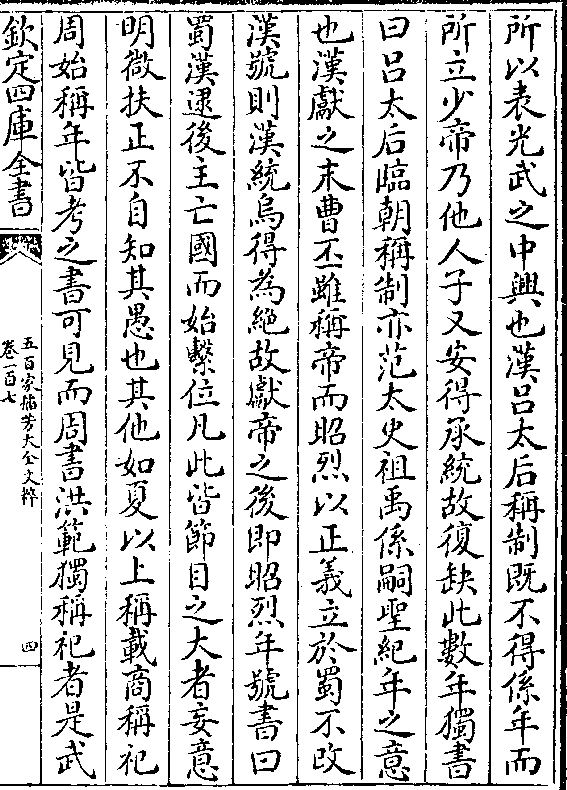 所以表光武之中興也漢吕太后稱制既不得係年而
所立少帝乃他人子又安得承統故復缺此數年獨書
曰吕太后臨朝稱制亦范太史祖禹係嗣聖紀年之意
也漢獻之末曹丕雖稱帝而昭烈以正義立於蜀不改
漢號則漢統烏得為絶故獻帝之後即昭烈年號書曰
蜀漢逮後主亡國而始繫位凡此皆節目之大者妄意
明微扶正不自知其愚也其他如夏以上稱載商稱祀
周始稱年皆考之書可見而周書洪範獨稱祀者是武
欽定四庫全書
五百家播芳大全文粹
卷一百七
四